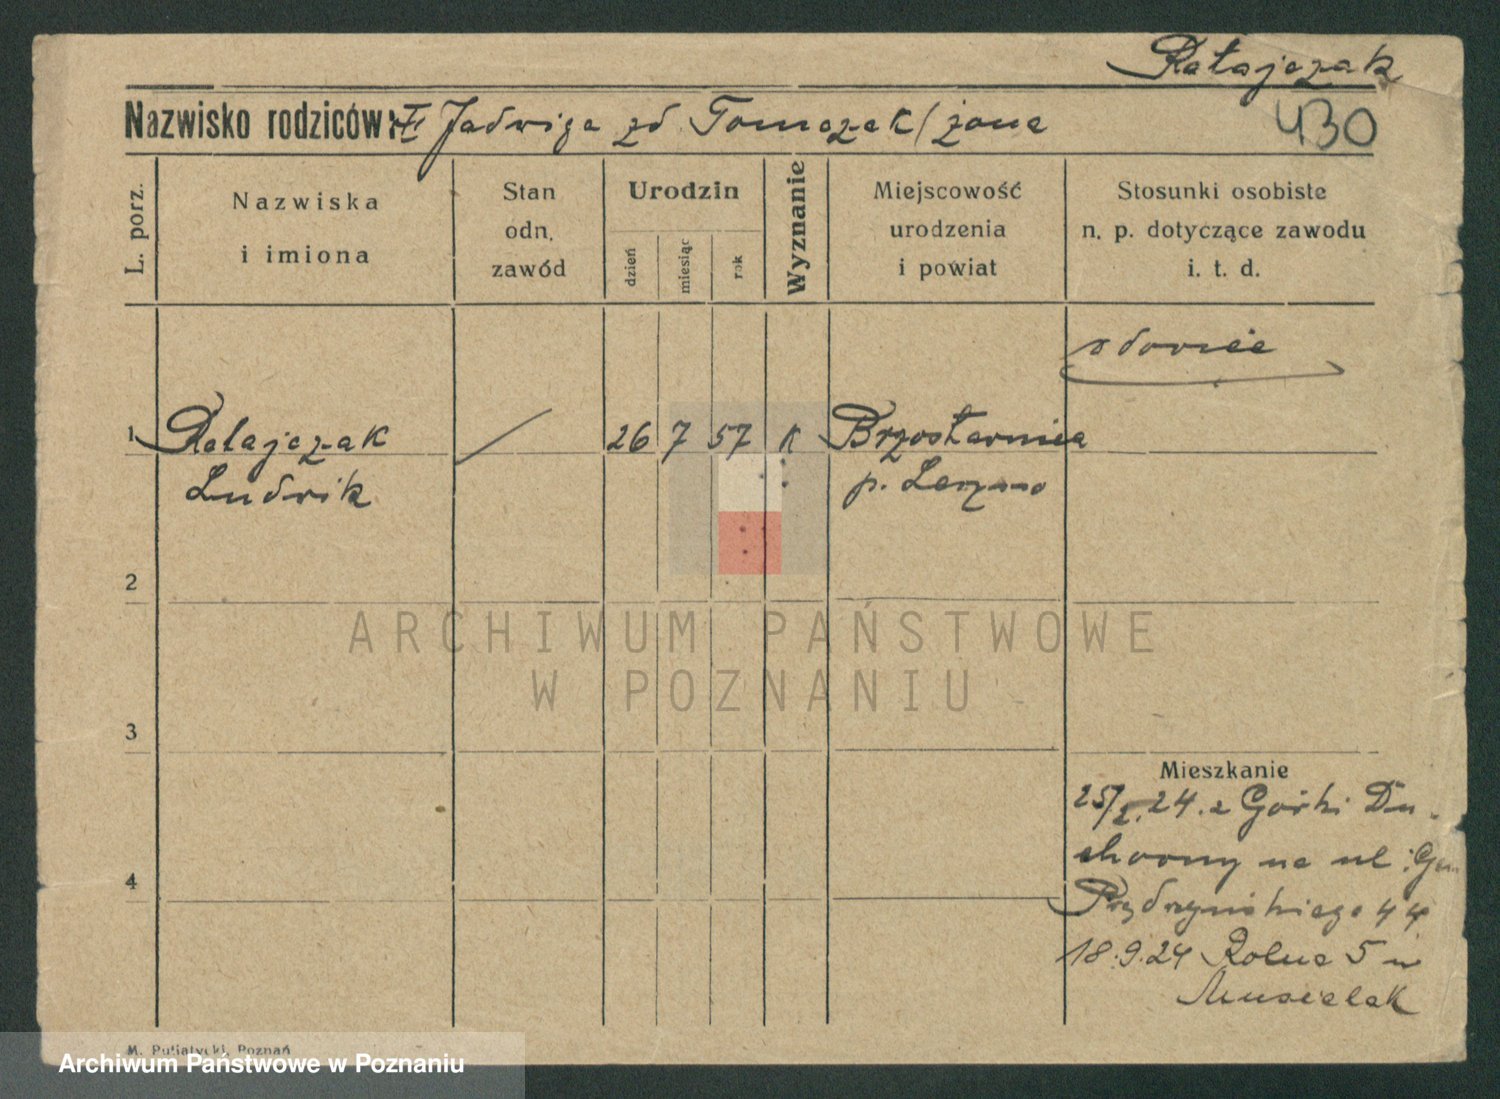 Ratajczak
Nazwisko rodziców: Jadwiga zd Tomczak / żona
430
L. porz.
Nazwiska
i imiona
Stan
odn.
zawód
Urodzin
dzień
miesiąc
rok
Wyznanie
Miejscowość
urodzenia
i powiat
Stosunki osobiste
n. p. dotyczące zawodu
i. t. d.
1 Ratajczak 26 7 57 k
Ludwik p.
2
3
4
Mieszkanie
24. z Górki Du-
chowny na ul. Gen
Prądzyńskiego 44
18.9.24 Rolna 5 u
Musielak
M. Putiatycki, Poznań
ARCHIWUM PAŃSTWOWE
W POZNANIU
Archiwum Państwowe w Poznaniu